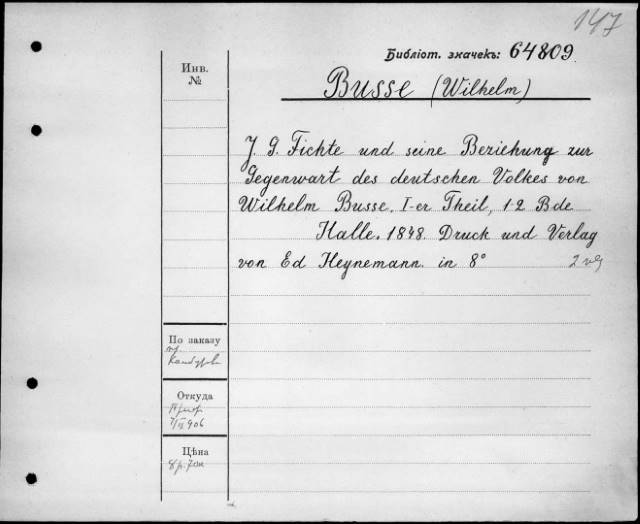 147
Библіот. значекъ: 64809.
Инв.
№
Busse (Wilhelm)
J. G. Fichte und seine Beziehung zur
Gegenwart des deutschen Volkes von
Wilhelm Busse. I-er Theil, 1 2 Bde
Halle. 1848. Druck und Verlag
von Ed Heynemann. in 8°
По заказу
Откуда
906
Цѣна